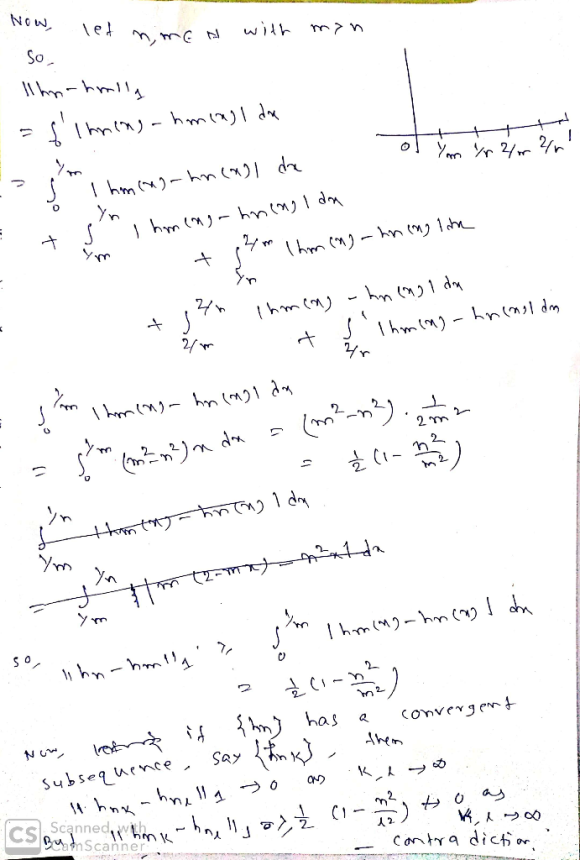 Now, let n, m ∈ N with m > n
So,
||hn - hm||1
= ∫₀¹ |hn(x) - hm(x)| dx
0 1/m 1/n 2/m 2/n 1
= ∫₀^{1/m} |hm(x) - hn(x)| dx
+ ∫_{1/m}^{1/n} |hm(x) - hn(x)| dx
+ ∫_{1/n}^{2/m} |hm(x) - hn(x)| dx
+ ∫_{2/m}^{2/n} |hm(x) - hn(x)| dx
+ ∫_{2/n}^{1} |hm(x) - hn(x)| dx
∫₀^{1/m} |hm(x) - hn(x)| dx
= ∫₀^{1/m} (m² - n²) x dx = (m² - n²) · 1/2m²
= 1/2 (1 - n²/m²)
∫_{1/m}^{1/n} |hm(x) - hn(x)| dx
So, ||hn - hm||1 ≥ ∫₀^{1/m} |hm(x) - hn(x)| dx
= 1/2 (1 - n²/m²)
Now, if {hn} has a convergent
subsequence, say {hnk}, then
||hnk - hnl||1 → 0 as k, l → ∞
But ||hnk - hnl||1 ≥ 1/2 (1 - ) ↛ 0 as
k, l → ∞
- contradiction.
CS Scanned with
CamScanner